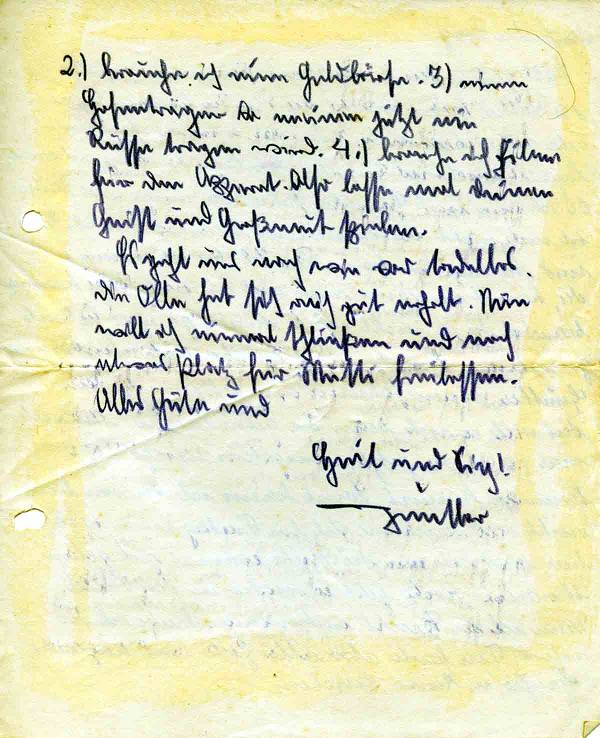 2.) brauche ich eine Geldbörse. 3) einen
Hosenträger da meinen jetzt ein
Russe tragen wird. 4.) brauche ich Filme
für den Apparat. Also lasse mal deinen
Geist und Großmut spielen.
Es geht uns noch wie vor tadellos.
die Olle hat sich auch gut erholt. Nun
will ich einmal schließen und noch
etwas Platz für Mutti hinlassen.
Alles Gute und
Heil und Sieg!
Günther